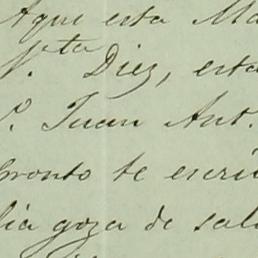 Aqui esta Ma
Vta Diez, esta
P. Juan Ant.
pronto te escri
lia goza de salu